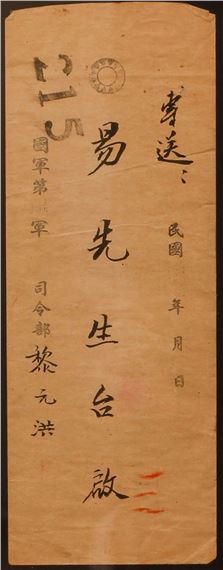 專送
民國 年 月 日
易先生台啟
國軍第 軍 司令部 黎元洪
215